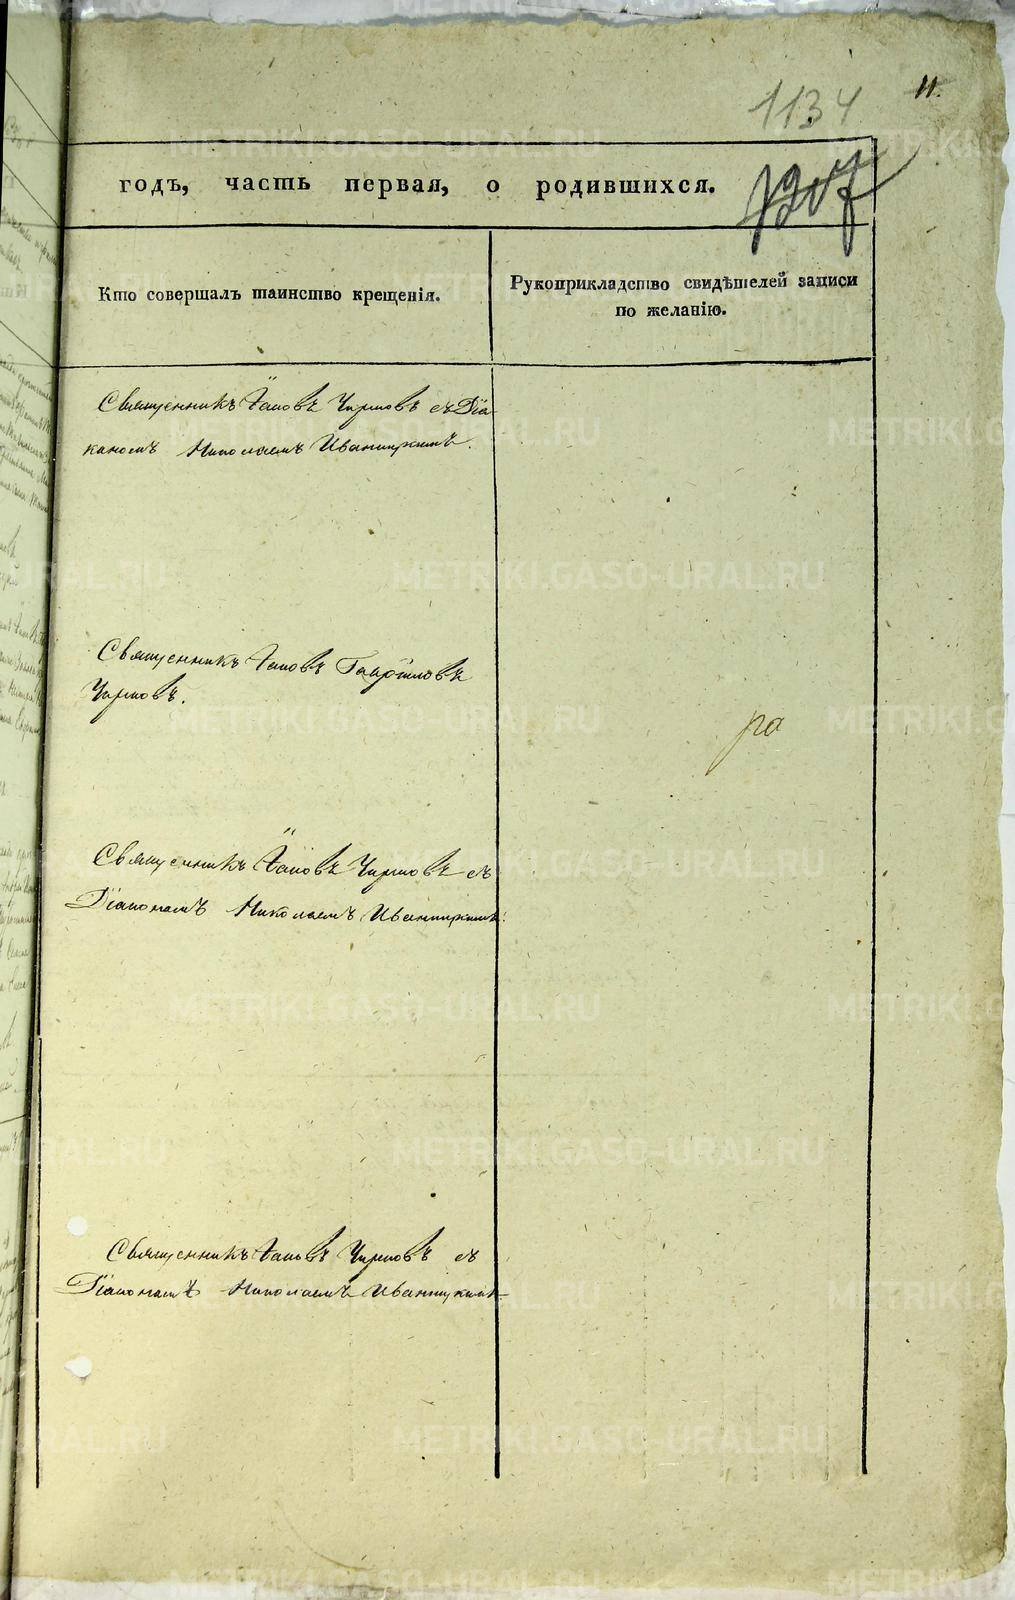 1134
11.
1207
годъ, часть первая, о родившихся.
Кто совершалъ таинство крещенія.
Рукоприкладство свидѣтелей записи
по желанію.
Священникъ Іаковъ Чирковъ съ Діа-
кономъ Николаемъ Иваницкимъ.
Священникъ Іаковъ Гавріиловъ
Чирковъ.
ра
Священникъ Іаковъ Чирковъ съ
Діакономъ Николаемъ Иваницкимъ.
Священникъ Іаковъ Чирковъ съ
Діакономъ Николаемъ Иваницкимъ
METRIKI.GASO-URAL.RU